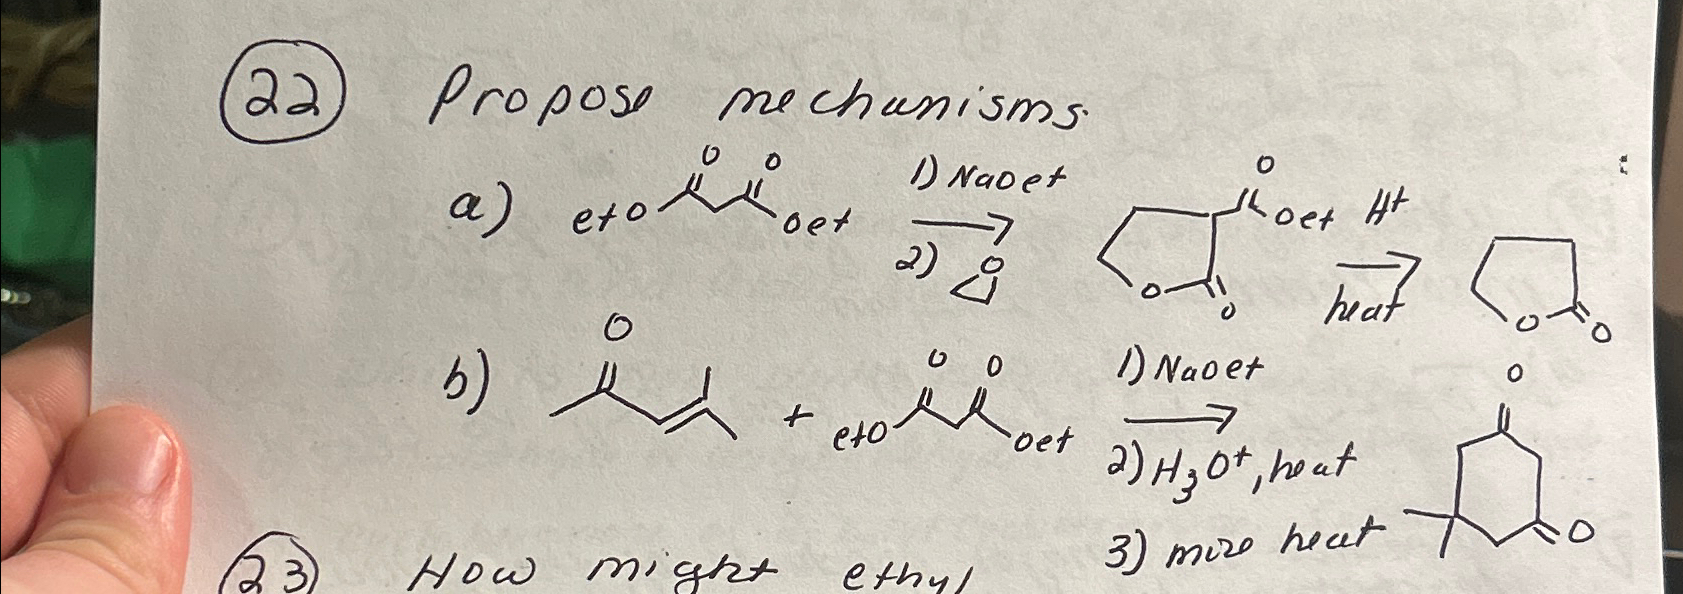 22 Propose mechanisms.
a) etO O O oet 1) Naoet 2) O O oet O O H+ heat O O
b) O + etO O O oet 1) Naoet 2) H3O+, heat 3) more heat O O
23 How might ethyl